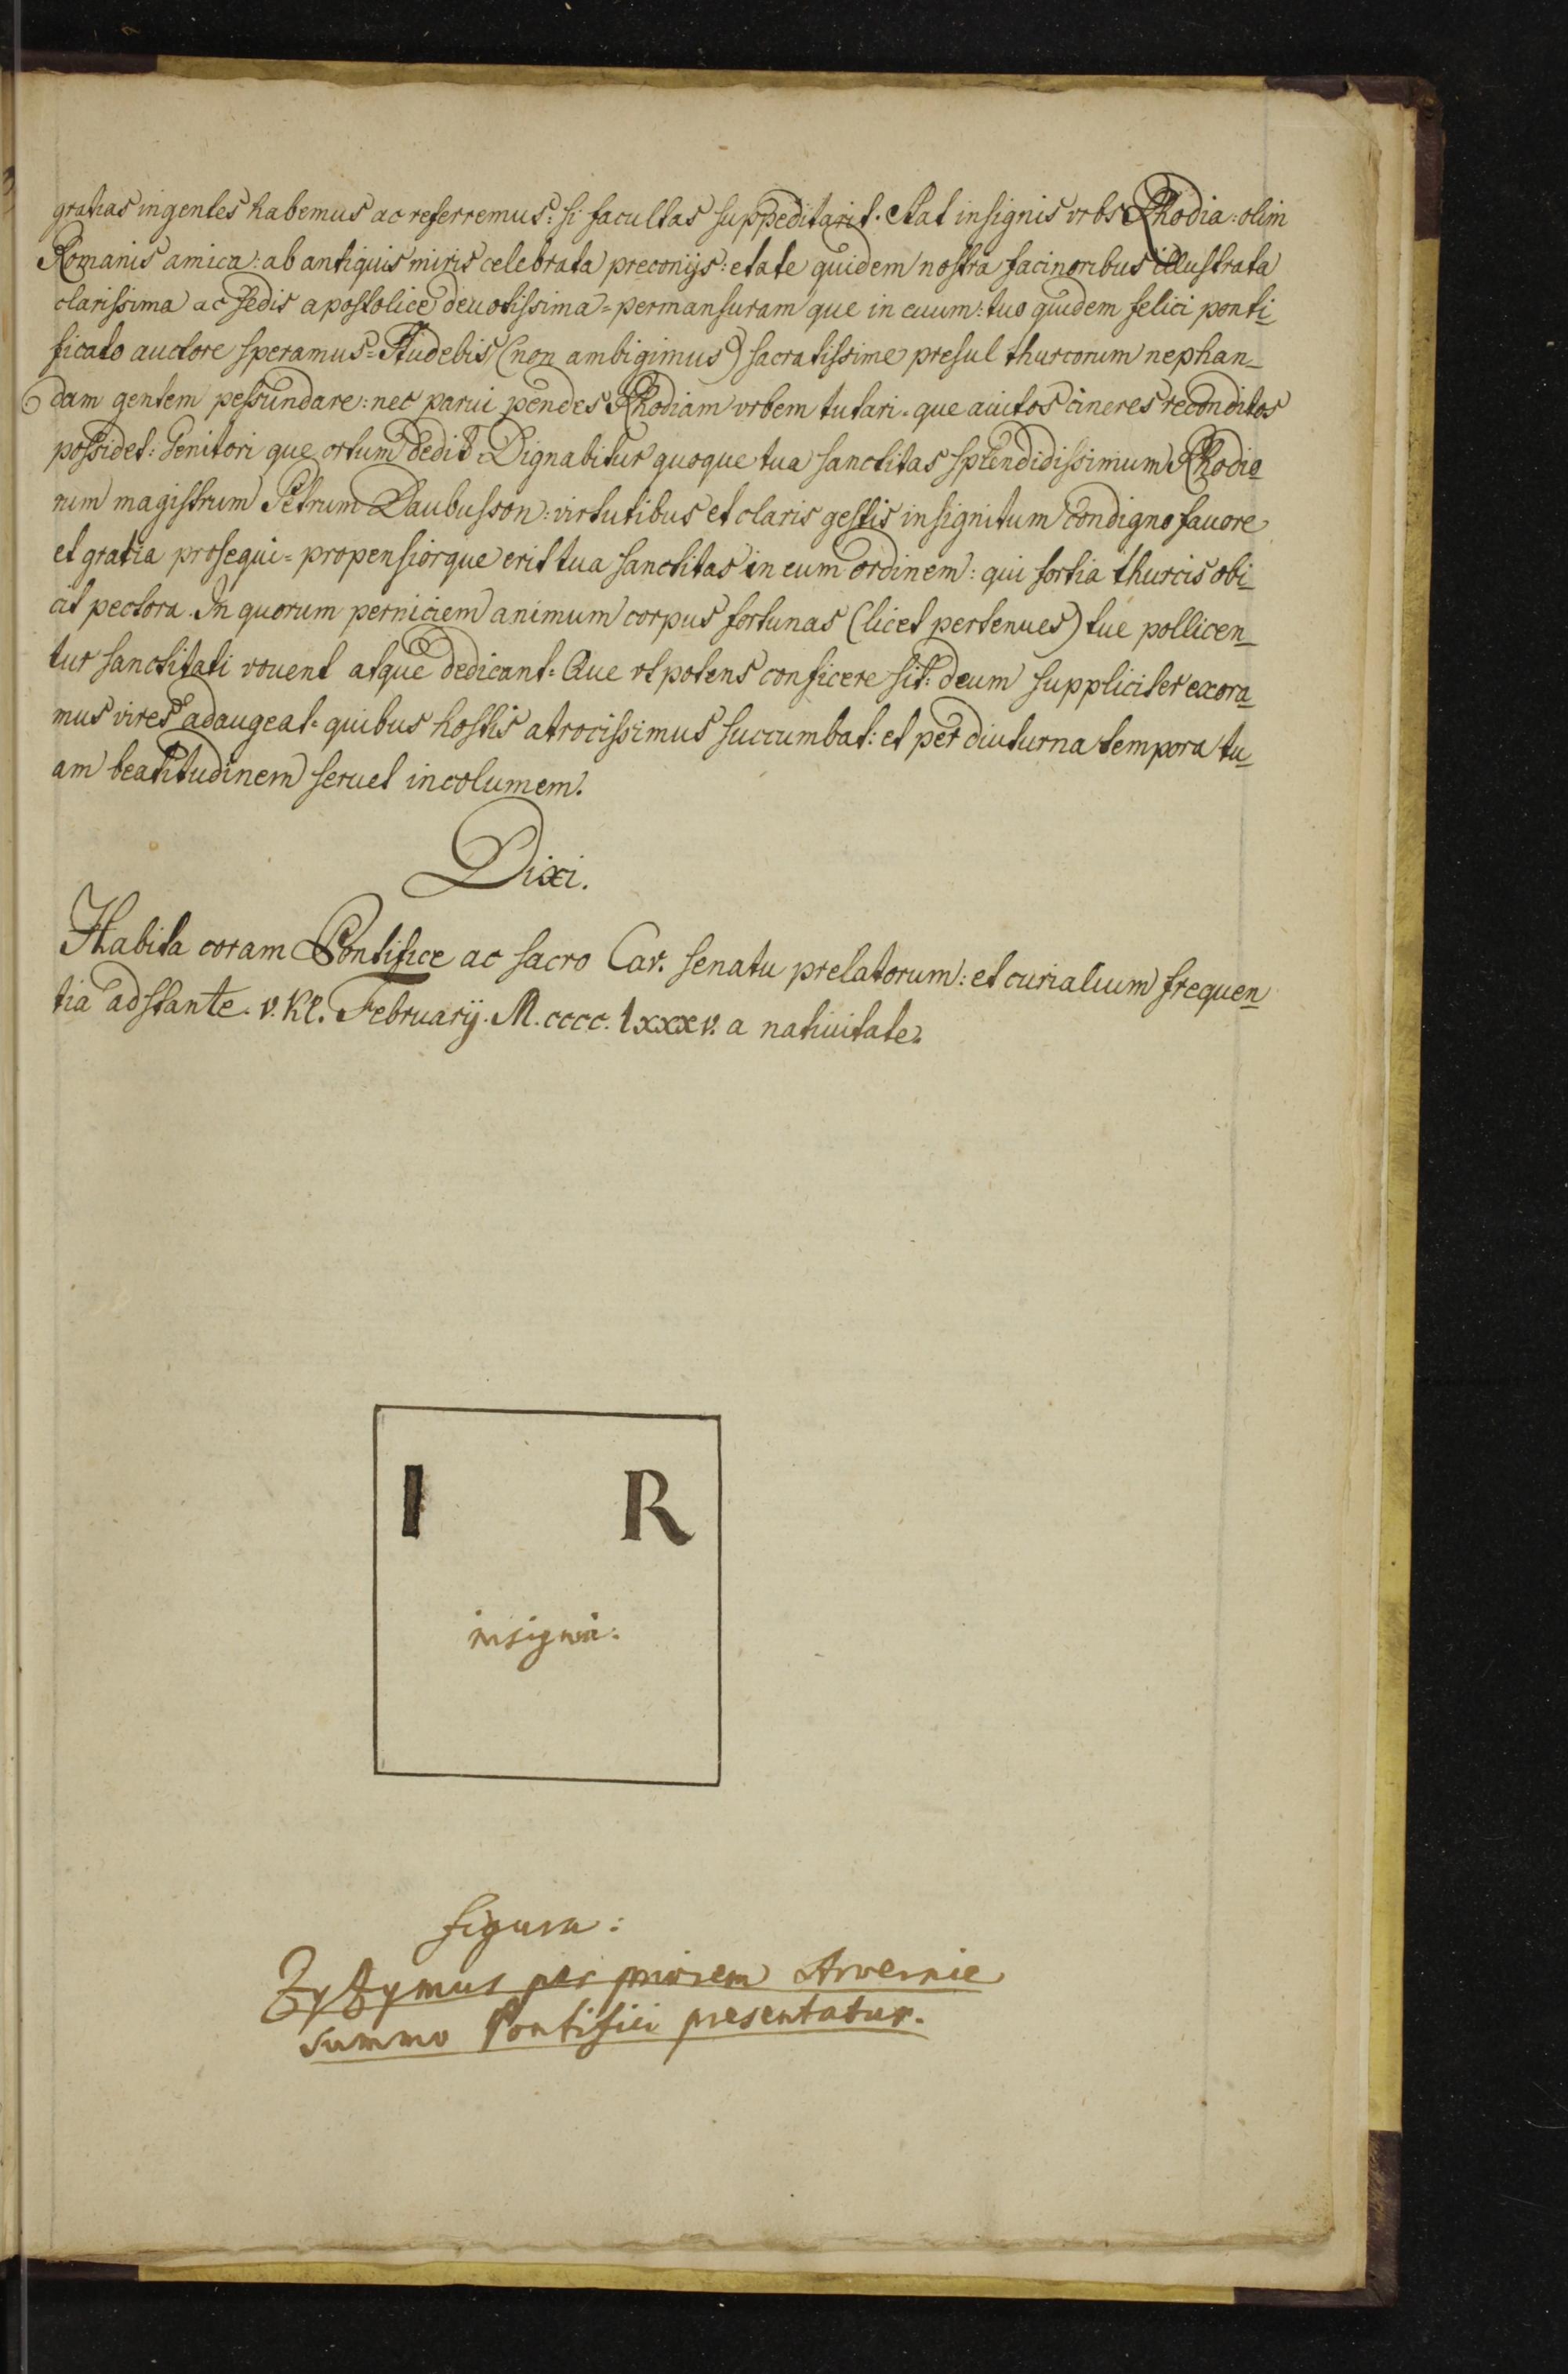 gratias ingentes habemus ac referremus: si facultas suppeditarit. Stat insignis vrbs Rhodia: olim
Romanis amica: ab antiquis miris celebrata preconijs: etate quidem nostra facinoribus illustrata
clarissima ac sedis apostolice deuotissima= permansuram que in euum: tuo quidem felici ponti_
ficato auctore speramus= Studebis (non ambigimus) sacratissime presul thurcorum nephan_
dam gentem pessundare: nec parui pendes Rhodiam vrbem tutari. que auitos cineres reconditos
possidet: Genitori que ortum dedit. Dignabitur quoque tua sanctitas splendidissimum Rhodio_
rum magistrum Petrum Daubusson: virtutibus et claris gestis insignitum condigno fauore
et gratia prosequi= propensiorque erit tua sanctitas in eum ordinem: qui fortia thurcis obi_
cit pectora. In quorum perniciem animum corpus fortunas (licet pertenues) tue pollicen_
tur sanctitati vouent atque dedicant. Que vt potens conficere sit: deum suppliciter exora_
mus vires adaugeat. quibus hostis atrocissimus succumbat: et per diuturna tempora tu_
am beatitudinem seruet incolumem.
Dixi.
Habita coram Pontifice ac sacro Car. senatu prelatorum: et curialium frequen_
tia adstante. v. Kl. February. M. cccc. lxxxv. a natiuitate.
I R
insignia.
figura:
Zyzymus per priorem Arvernie
summo Pontifici presentatur.